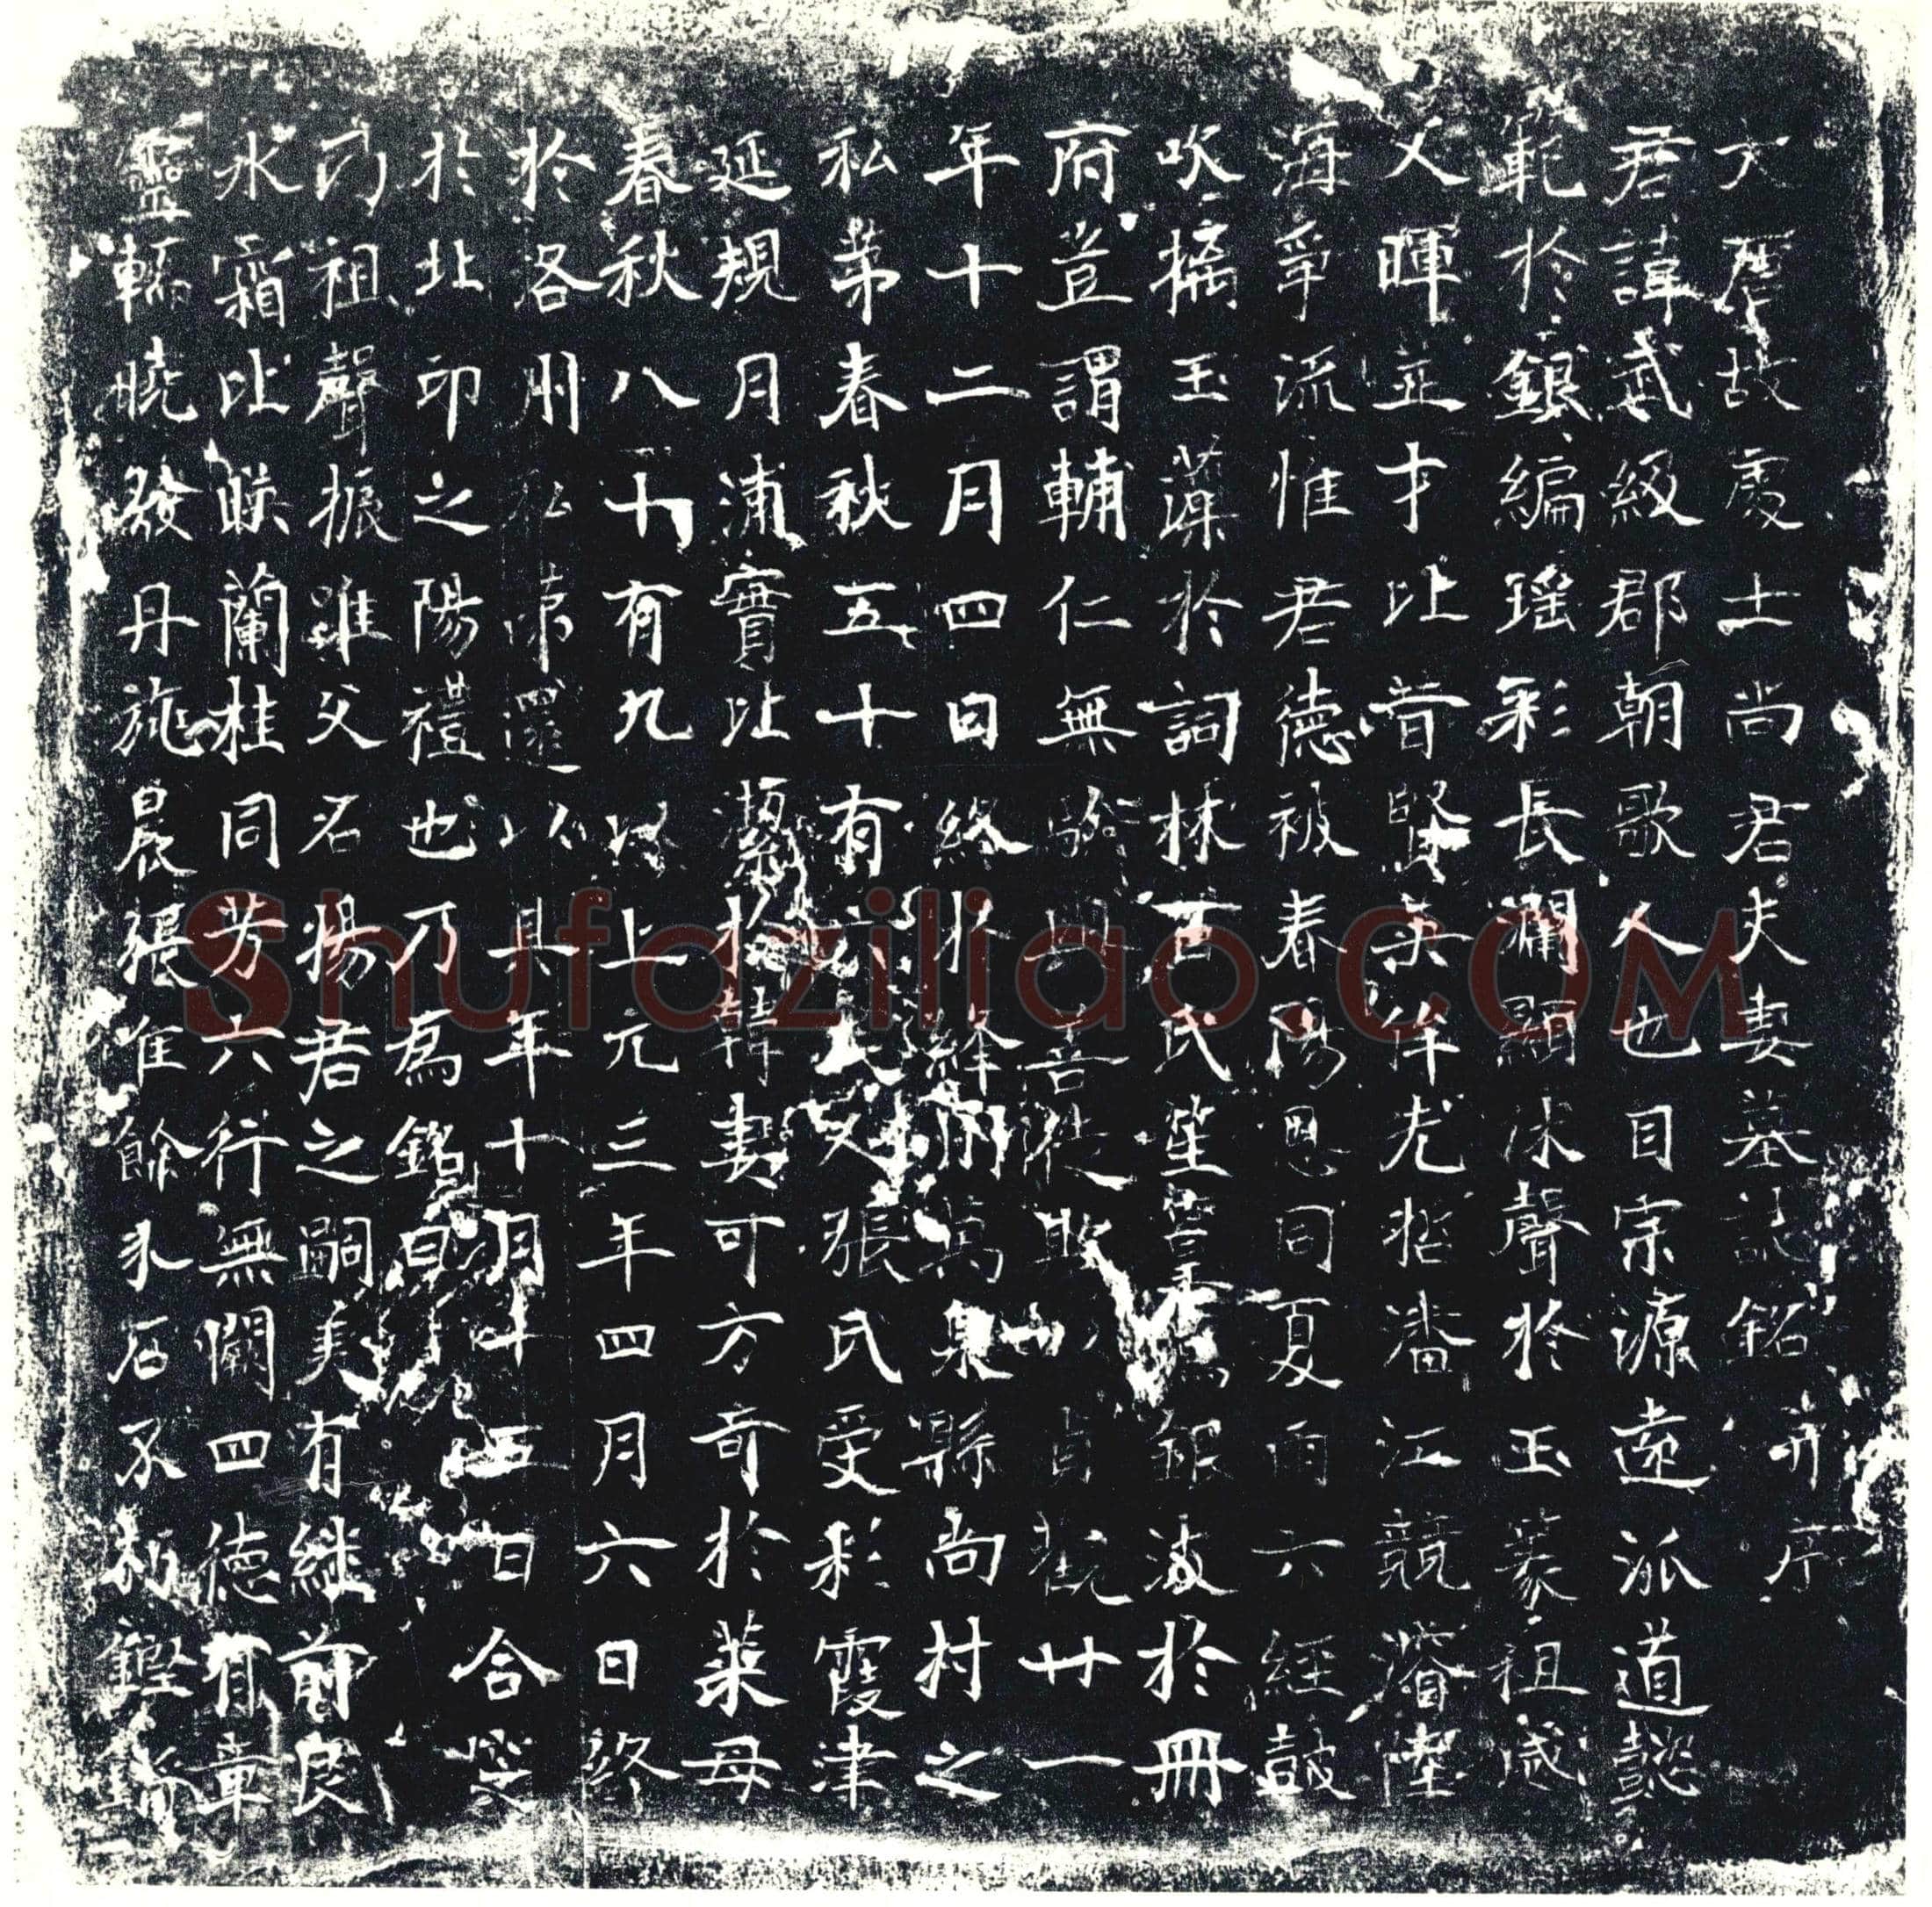 大唐故處士尚君夫妻墓誌銘并序
君諱武級郡朝歌人也自宗源遠派道懿
範於銀編瑤彩長瀾嗣休聲於玉篆祖感
父暉並才比昔賢英侔先哲潘江競濬陸
海爭流惟君德被春陽恩同夏雨六經鼓
吹摛玉藻於詞林百氏笙簧鳥銀海於冊
府豈謂輔仁無驗與善徒貞觀廿一
年十二月四日終於絳州萬泉縣尚村之
私第春秋五十有六夫人張氏受彩霞津
延規月浦實比於韓妻可方奇於萊母
春秋八十有九以上元三年四月六日終
於洛州私第還以其年十月十五日合葬
於北邙之陽禮也乃為銘曰
乃祖聲振雖父名揚君之嗣美有繼前良
冰霜比皎蘭桂同芳六行無闕四德有章
靈轜曉發丹旐晨張唯餘永石不朽鏗鏘
Shufaziliao.COM